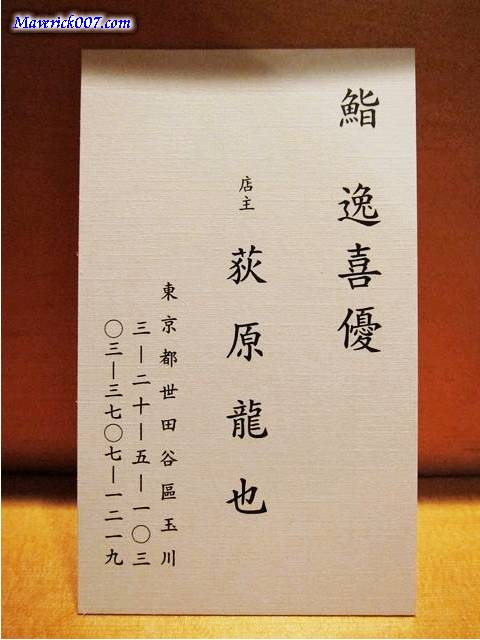 Maverick007.com
鮨 逸喜優
店主 荻原龍也
東京都世田谷區玉川
三―二十―五―一〇三
〇三―三七〇七―一二一九